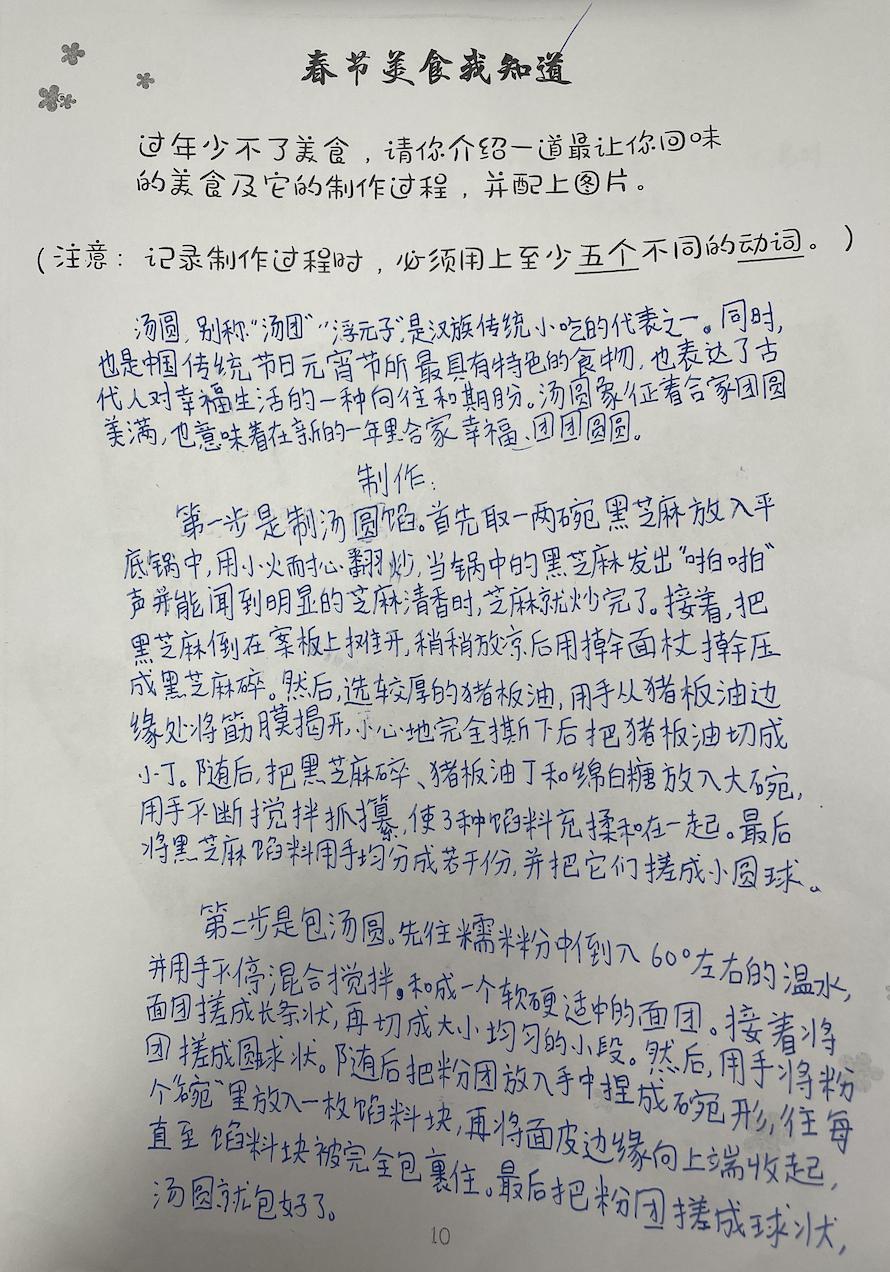 春节美食我知道
过年少不了美食，请你介绍一道最让你回味
的美食及它的制作过程，并配上图片。
（注意：记录制作过程时，必须用上至少五个不同的动词。）
汤圆，别称“汤团”“浮元子”，是汉族传统小吃的代表之一。同时，
也是中国传统节日元宵节所最具有特色的食物，也表达了古
代人对幸福生活的一种向往和期盼。汤圆象征着合家团圆
美满，也意味着在新的一年里合家幸福、团团圆圆。
制作：
第一步是制汤圆馅。首先取一两碗黑芝麻放入平
底锅中，用小火耐心翻炒，当锅中的黑芝麻发出“啪啪”
声并能闻到明显的芝麻清香时，芝麻就炒完了。接着，把
黑芝麻倒在案板上摊开，稍稍放凉后用擀面杖擀压
成黑芝麻碎。然后，选较厚的猪板油，用手从猪板油边
缘处将筋膜揭开，小心地完全撕下后把猪板油切成
小丁。随后，把黑芝麻碎、猪板油丁和绵白糖放入大碗，
用手不断搅拌抓攥，使3种馅料充揉和在一起。最后
将黑芝麻馅料用手均分成若干份，并把它们搓成小圆球。
第二步是包汤圆。先往糯米粉中倒入60°左右的温水，
并用手不停混合搅拌。和成一个软硬适中的面团。接着将
面团搓成长条状，再切成大小均匀的小段。然后，用手将粉
团搓成圆球状。随后把粉团放入手中捏成碗形，往每
个“碗”里放入一枚馅料块，再将面皮边缘向上端收起，
直至馅料块被完全包裹住。最后把粉团搓成球状，
汤圆就包好了。
10